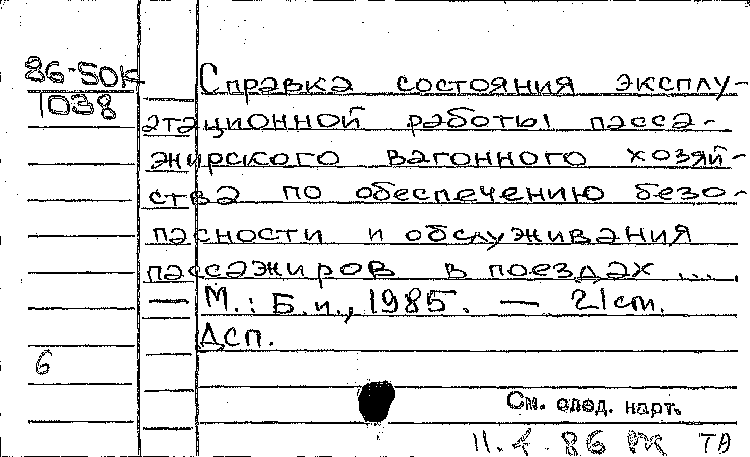 86-50к
1038
Справка состояния эксплу-
атационной работы пасса-
жирского вагонного хозяй-
ства по обеспечению безо-
пасности и обслуживания
пассажиров в поездах ....
— М.: Б.и., 1985. — 21 cm.
Дсп.
6
См. след. карт.
11.4.86